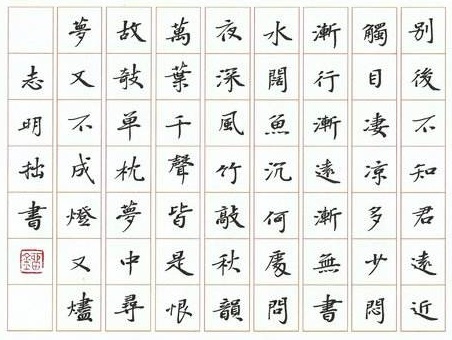 別後不知君遠近
觸目凄涼多少悶
漸行漸遠漸無書
水闊魚沉何處問
夜深風竹敲秋韻
萬葉千聲皆是恨
故敧單枕夢中尋
夢又不成燈又燼
志明拙書